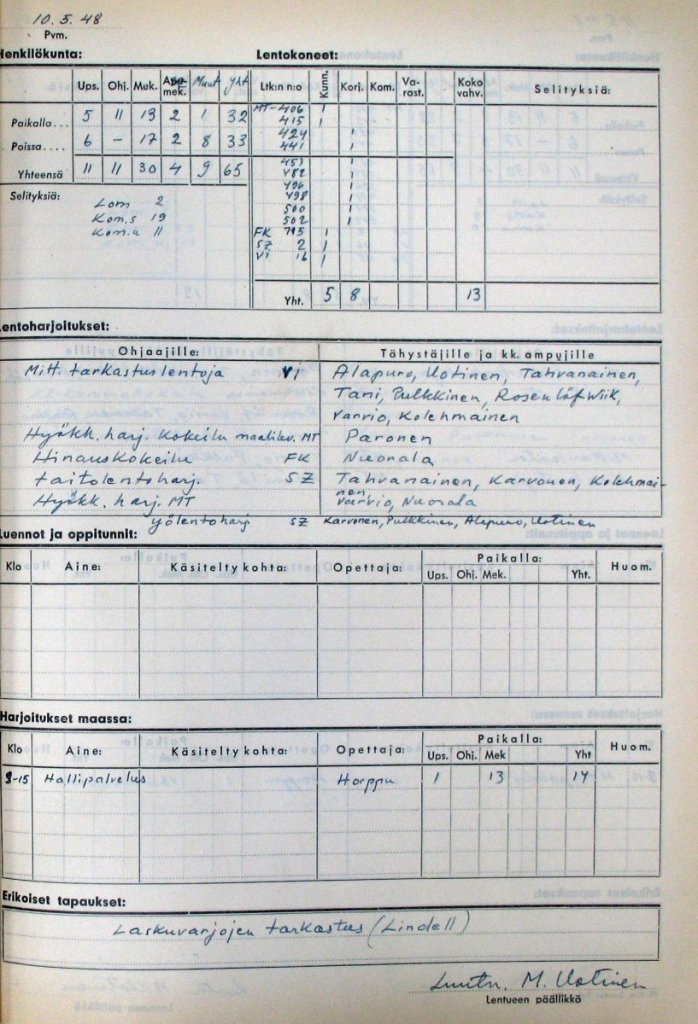 10.5.48
Pvm.
Henkilökunta:
Ups. Ohj. Mek. mek. Muut yht
Paikalla... 5 11 13 2 1 32
Poissa.... 6 – 17 2 8 33
Yhteensä 11 11 30 4 9 65
Selityksiä:
Lom 2
Kom.s 19
Kom.u 11
Lentokoneet:
Ltk:n n:o Kunn. Korj. Kom. Va-rast. Koko vahv. Selityksiä:
MT-406 1
415 1
429 1
441 1
451 1
482 1
496 1
498 1
500 1
502 1
FK 1
SZ 2 1
Vi 16 1
Yht. 5 8 13
Lentoharjoitukset:
Ohjaajille: Tähystäjille ja kk. ampujille
Mitt. tarkastuslentoja Vi Alapuro, Uotinen, Tahvanainen,
Tani, Pulkkinen, Rosenlöf Wiik,
Varrio, Kolehmainen
Hyökk. harj. kokeilu MT Paronen
Hinauskokeilu FK Nuorala
taitolentoharj SZ Tahvanainen, Karvonen, Kolehmai-
nen,
Hyökk. harj. MT Varvio, Nuorala
yölentoharj SZ Karvonen, Pulkkinen, Alapuro, Uotinen
Luennot ja oppitunnit:
Klo Aine: Käsitelty kohta: Opettaja: Paikalla: Huom.
Ups. Ohj. Mek. Yht.
Harjoitukset maassa:
Klo Aine: Käsitelty kohta: Opettaja: Paikalla: Huom.
Ups. Ohj. Mek Yht
8-15 Hallipalvelus Horppu 1 13 14
Erikoiset tapaukset:
Laskuvarjojen tarkastus (Lindell)
Luutn. M. Uotinen
Lentueen päällikkö